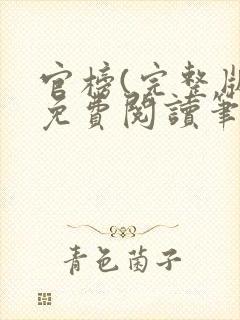 官榜(完整版
免費閱讀筆
青色菌子